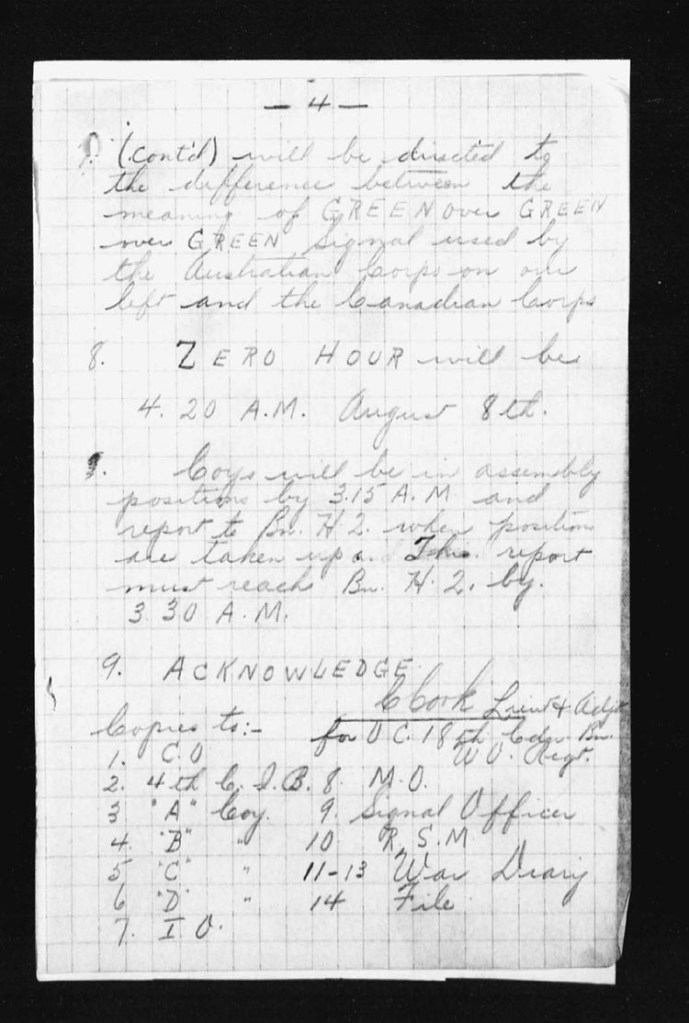 — 4 —
7. (cont'd) will be directed to
the difference between the
meaning of GREEN over GREEN
over GREEN signal used by
the Australian Corps on our
left and the Canadian Corps
8. ZERO HOUR will be
4.20 A.M. August 8th.
Coys will be in assembly
positions by 3.15 A.M. and
report to Bn. H.Q. when position
are taken up. This report
must reach Bn. H.Q. by.
3.30 A.M.
9. ACKNOWLEDGE.
Cook Lieut & Adjt
Copies to:- for O.C. 18th Cdn. Bn.
1. C.O W.O. Regt.
2. 4th C.I.B. 8. M.O.
3 "A" Coy. 9. Signal Officer
4. "B" " 10 R.S.M
5 "C" " 11-13 War Diary
6 "D" " 14 File
7. I.O.